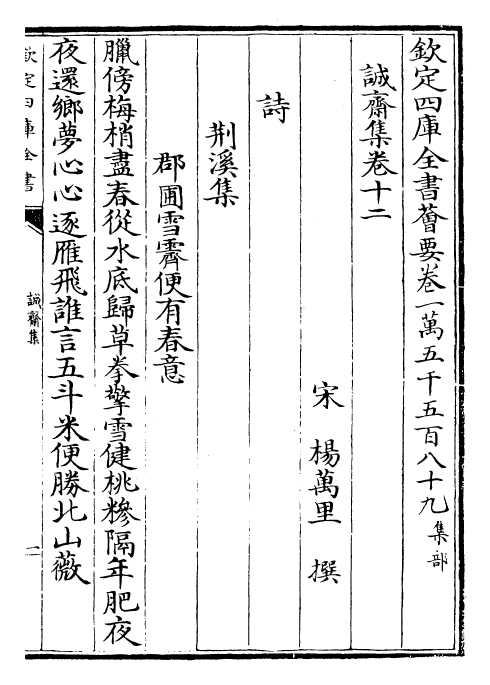 欽定四庫全書薈要卷一萬五千五百八十九 集部
誠齋集卷十二
宋 楊萬里 撰
詩
荆溪集
郡圃雪霽便有春意
臘傍梅梢盡春從水底歸草拳擎雪健桃糝隔年肥夜
夜還鄉夢心心逐雁飛誰言五斗米便勝北山薇
欽定四庫全書
誠齋集
一